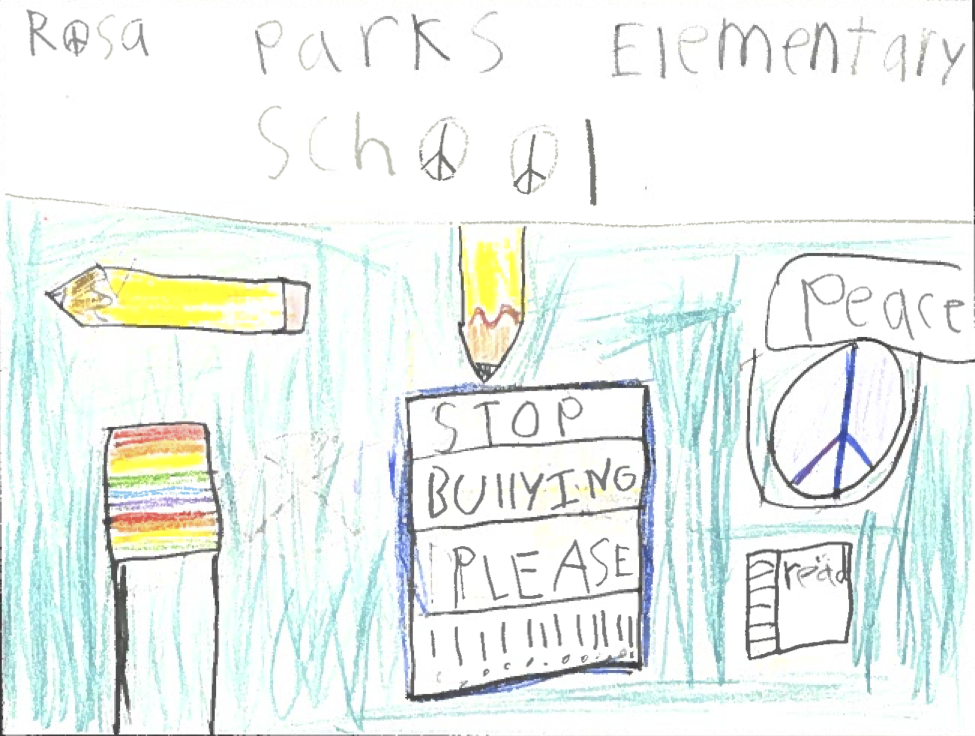 Rosa Parks Elementary
School
Peace
STOP
BUllYING
PLEASE
!!!!!!!!!!!!!
read